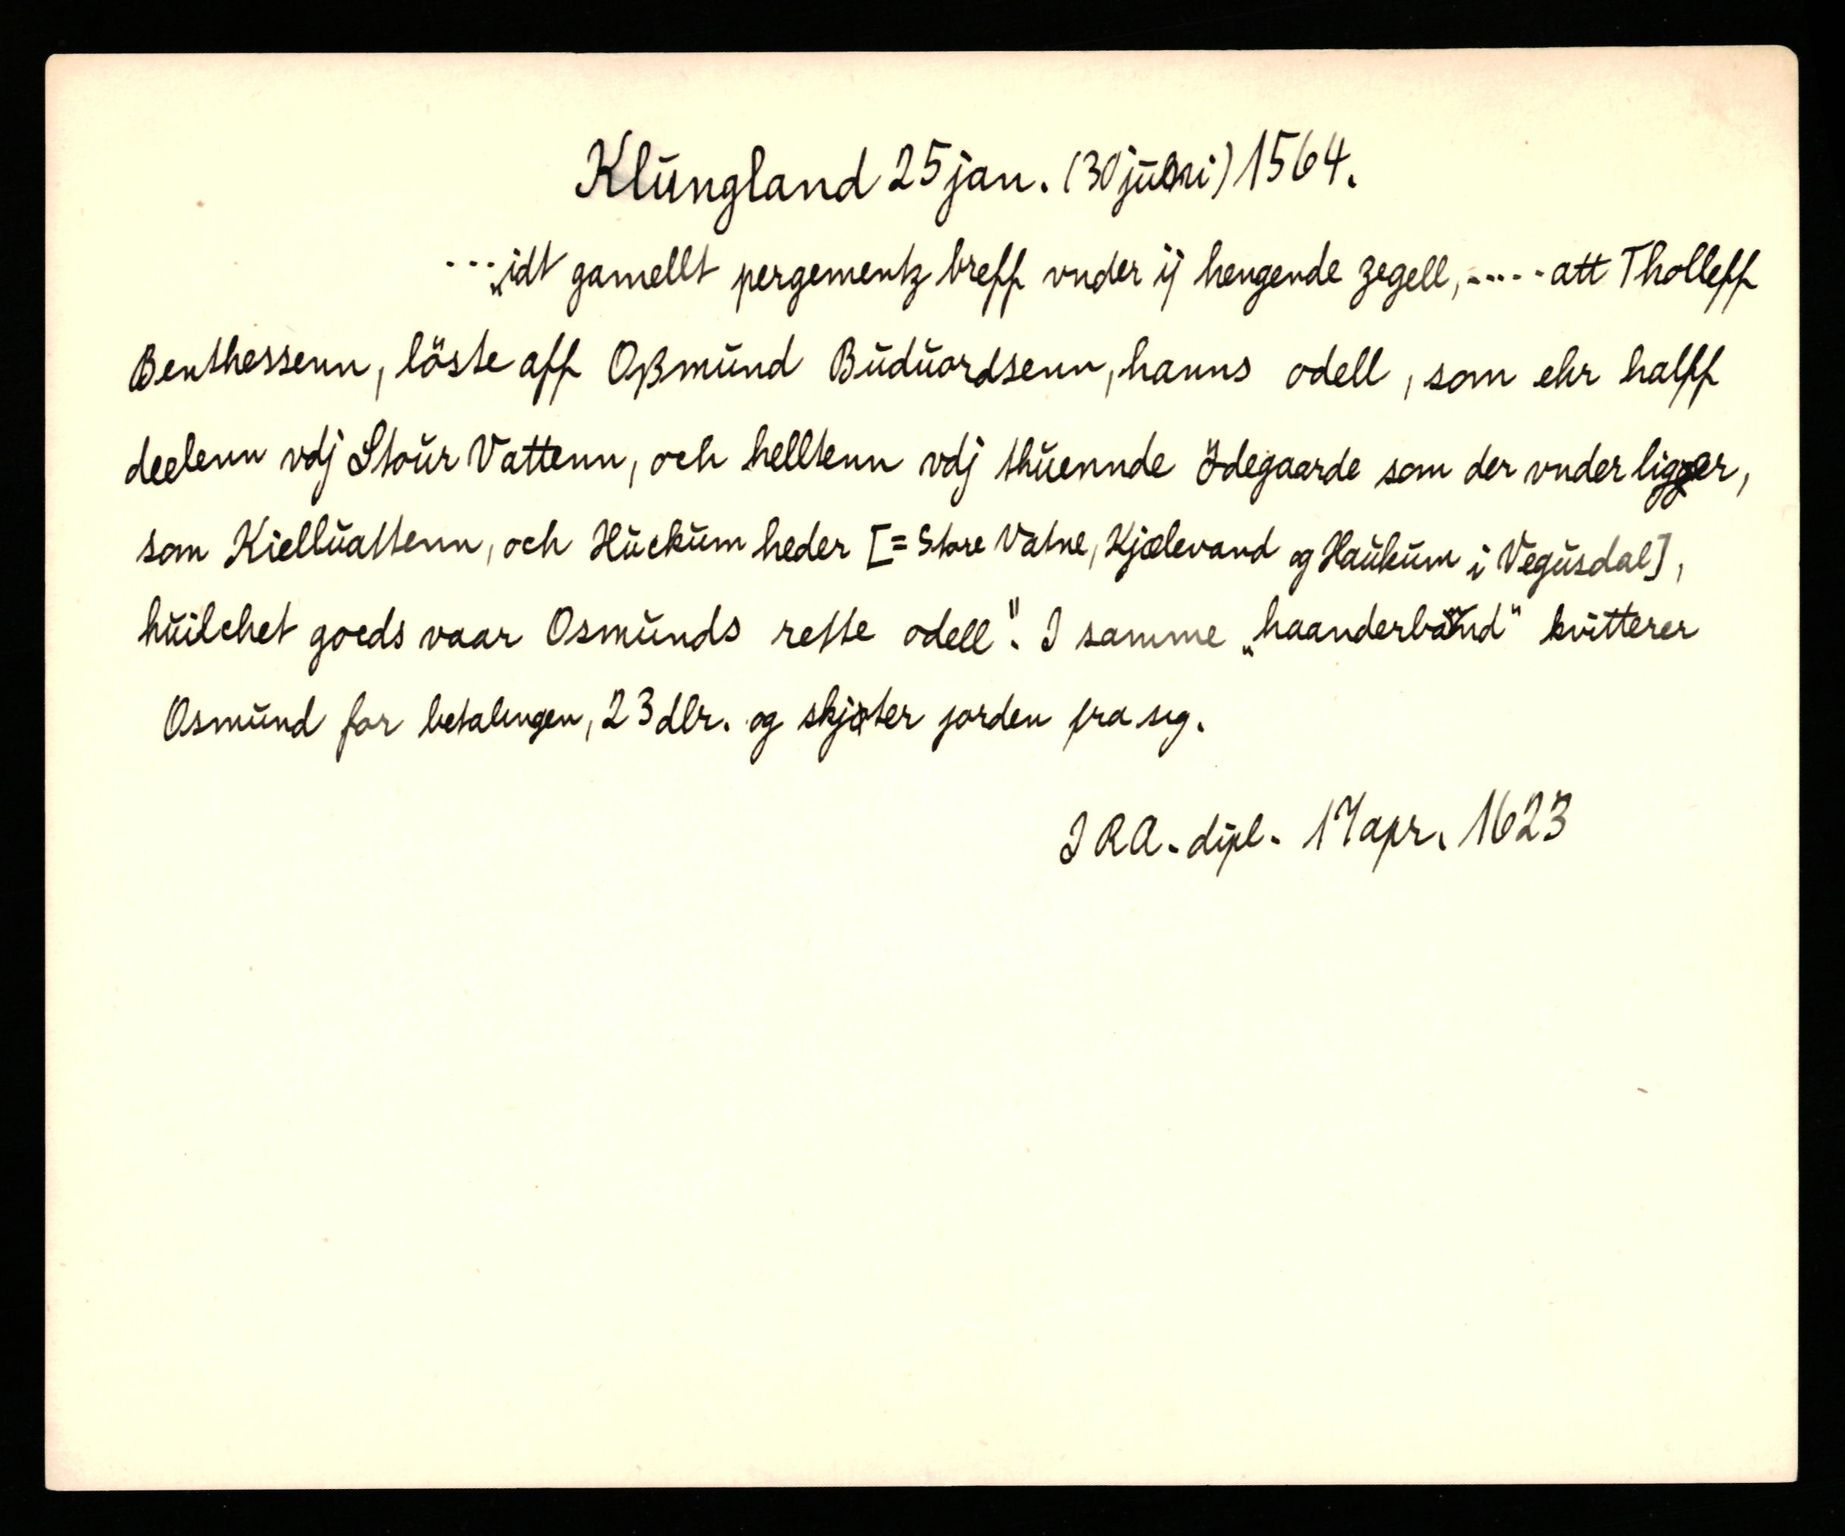 Klungland 25 jan. (30 juni) 1564.
... „idt gamellt pergementz breff vnder ij hengende zegell, ..... att Tholleff
Benthessenn, löste aff Oßmund Buduordsenn, hanns odell, som ehr halff
deelenn vdj Stour Vattenn, och helltenn vdj thuennde ödegaarde som der vnder ligger,
som Kielluattenn, och Huckum heder [= Store Vatne, Kjælevand og Haukum i Vegusdal],
huilchet goeds vaar Osmunds rette odell". I samme „haanderband" kvitterer
Osmund for betalingen, 23 dlr. og skjøter jorden fra sig.
I RA. dipl. 17 apr. 1623